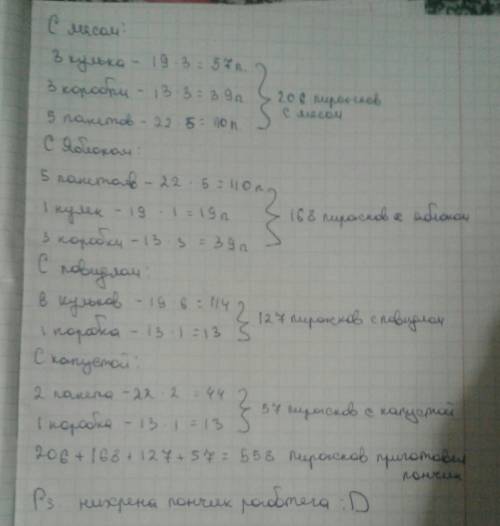 С мясом:
3 кулька - 19 · 3 = 57п.
3 коробки - 13 · 3 = 39п
5 пакетов - 22 · 5 = 110п
206 пирожков
с мясом
С Яблоком:
5 пакетов - 22 · 5 = 110п
1 кулек - 19 · 1 = 19п
3 коробки - 13 · 3 = 39п
168 пирожков с яблоком
С повидлом:
6 кульков - 19 · 6 = 114
1 коробка - 13 · 1 = 13
127 пирожков с повидлом
С капустой:
2 пакета - 22 · 2 = 44
1 коробка - 13 · 1 = 13
57 пирожков с капустой
206 + 168 + 127 + 57 = 558 пирожков приготовил
пончик
Ps нихрена пончик работяга :D